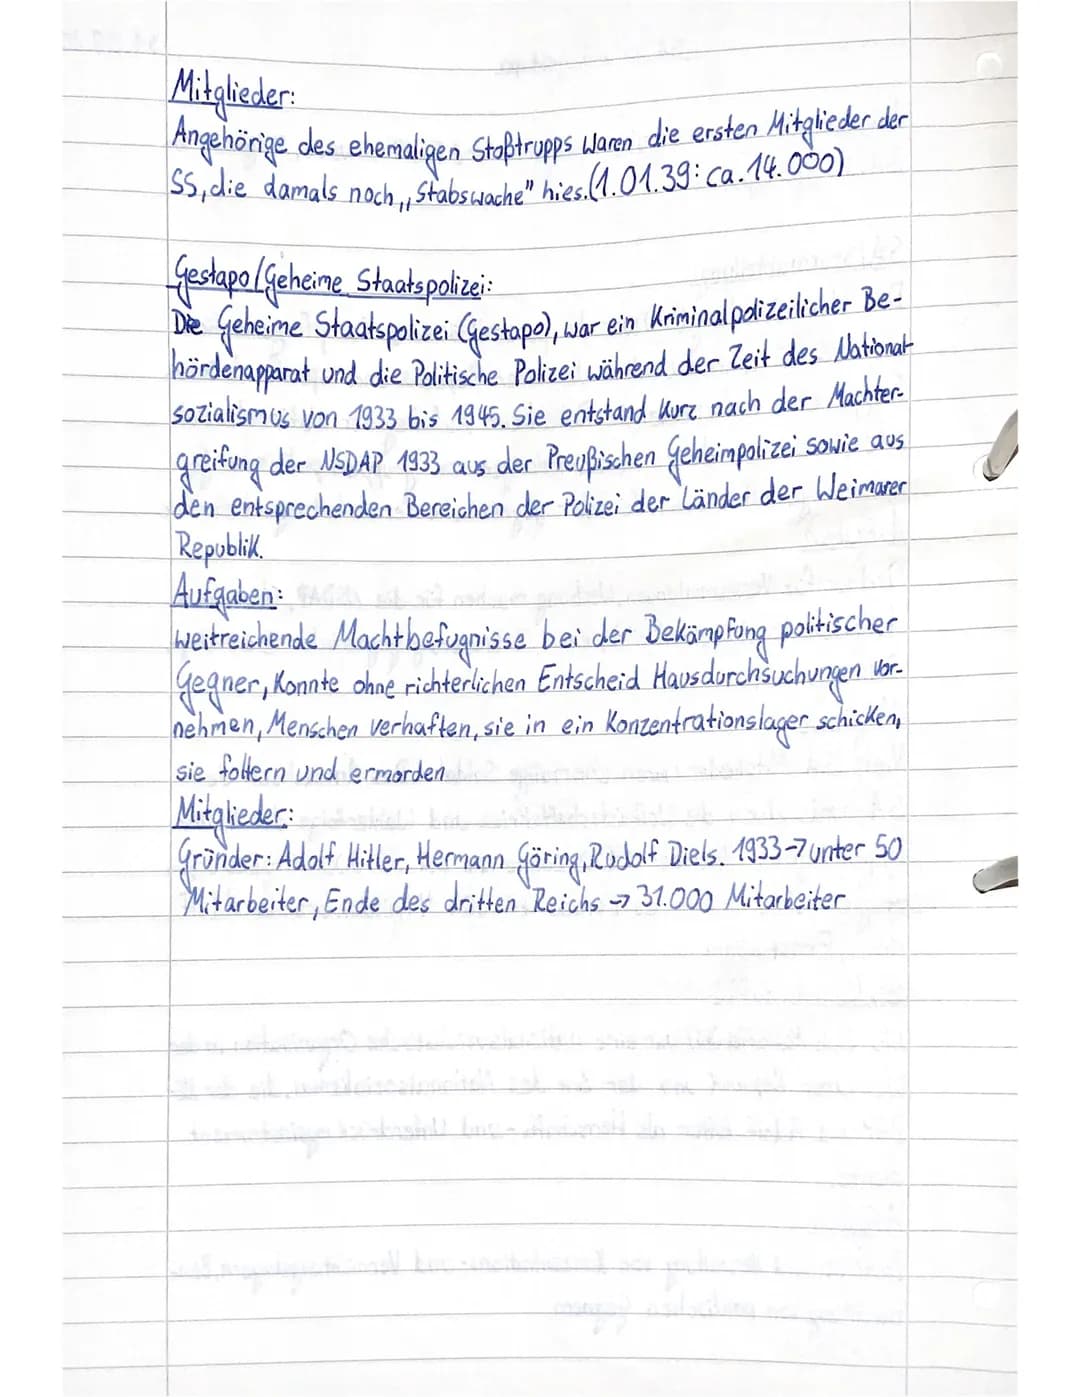 Mitglieder:
Angehörige des ehemaligen Stoßtrupps waren die ersten Mitglieder der
SS, die damals noch „Stabswache" hies. (1.01.39: ca. 14.000)
Gestapo/Geheime Staatspolizei:
Die Geheime Staatspolizei (Gestapo), war ein Kriminalpolizeilicher Be-
hördenapparat und die Politische Polizei während der Zeit des National-
sozialismus von 1933 bis 1945. Sie entstand kurz nach der Machter-
greifung der NSDAP 1933 aus der Preußischen Geheimpolizei sowie aus
den entsprechenden Bereichen der Polizei der Länder der Weimarer
Republik.
Aufgaben:
weitreichende Machtbefugnisse bei der Bekämpfung politischer
Gegner, Konnte ohne richterlichen Entscheid Hausdurchsuchungen vor-
nehmen, Menschen verhaften, sie in ein Konzentrationslager schicken,
sie foltern und ermorden
Mitglieder:
Gründer: Adolf Hitler, Hermann Göring, Rudolf Diels. 1933 → unter 50
Mitarbeiter, Ende des dritten Reichs → 31.000 Mitarbeiter